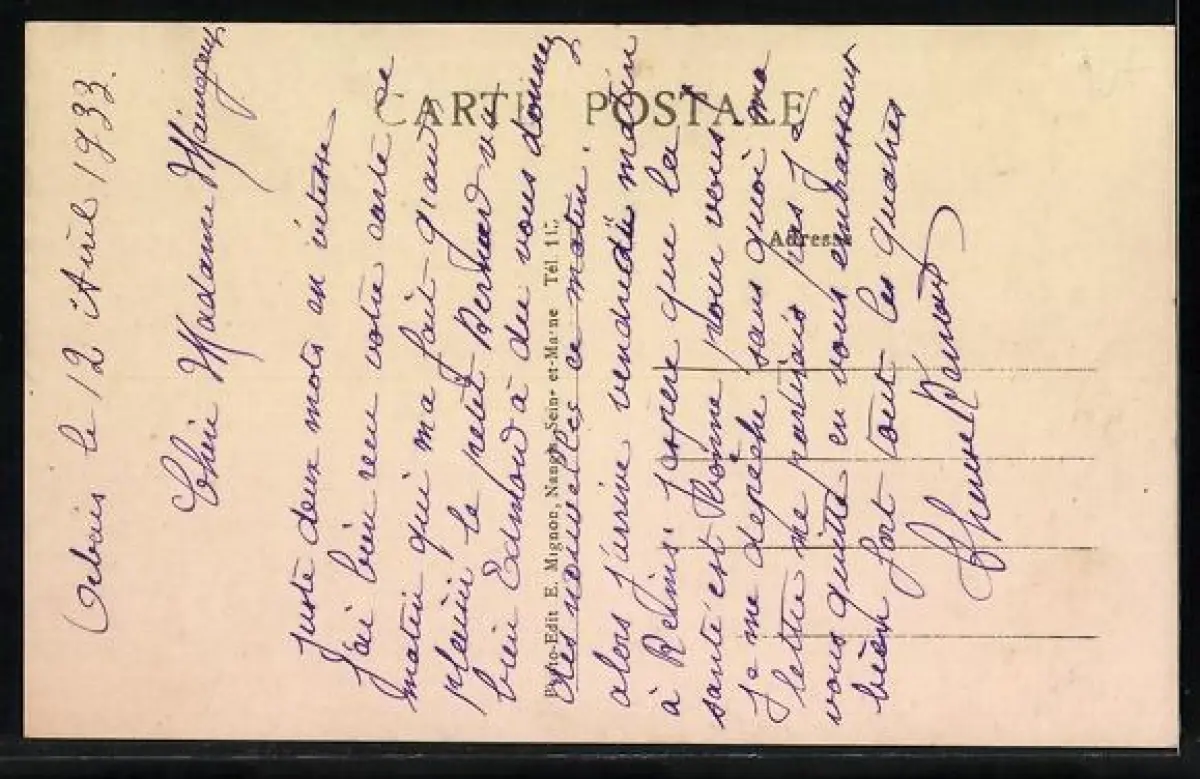 le 12 Avril 1933.
Chère Madame
juste deux mots en vitesse
J'ai bien reçu votre carte ce
matin qui ma fait grand
plaisir le petit Bernard va
bien Edmond à du vous donnez
des nouvelles ce matin.
alors j'arrive vendredi matin
à Reims. J'espere que la
santé est Bonne pour vous
Je me depèche sans quoi ma
lettre ne partirais pas Je
vous quitte en vous embrassant
bien fort tout les quatres
CARTE POSTALE
Adresse
Photo-Edit E. Mignon, Nangis Seine-et-Marne Tél.